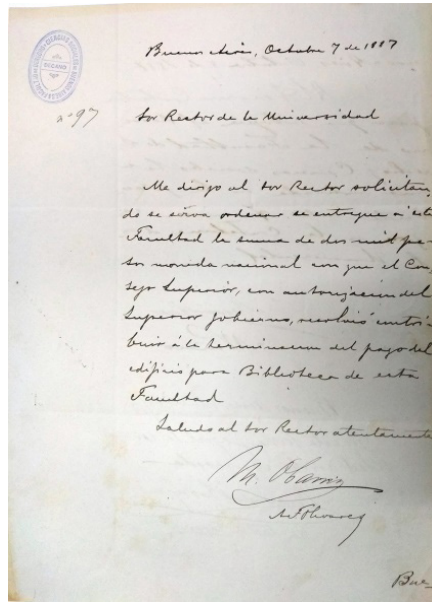 DECANO
Buenos Aires, Octubre 7 de 1887
nº 97
Sor Rector de la Universidad
Me dirijo al Sor Rector solicitan
do se sirva ordenar se entregue á esta
Facultad la suma de dos mil pe
sos moneda nacional con que el Con
sejo Superior, con autorizacion del
Superior Gobierno, resolvió contri-
buir á la terminacion del pago del
edificio para Biblioteca de esta
Facultad
Saludo al Sor Rector atentamente
M. Obarrio
Bue